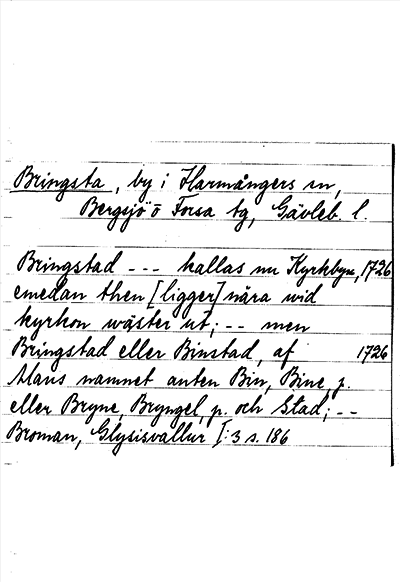 Bringsta, by i Harmångers sn,
Bergsjö o Forsa tg, Gävleb. l.
Bringstad --- kallas nu Kyrkbyn, 1726
emedan then [ligger] nära wid
kyrkon wäster ut; -- men
Bringstad eller Binstad, af 1726
Mans namnet anten Bin, Bine, p.
eller Bryne, Bryngel, p. och Stad; --
Broman, Glysisvallur I: 3 s. 186